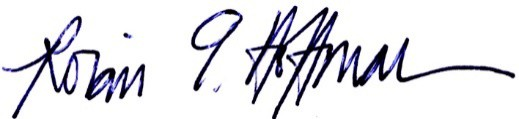 Robin G. Hoffman